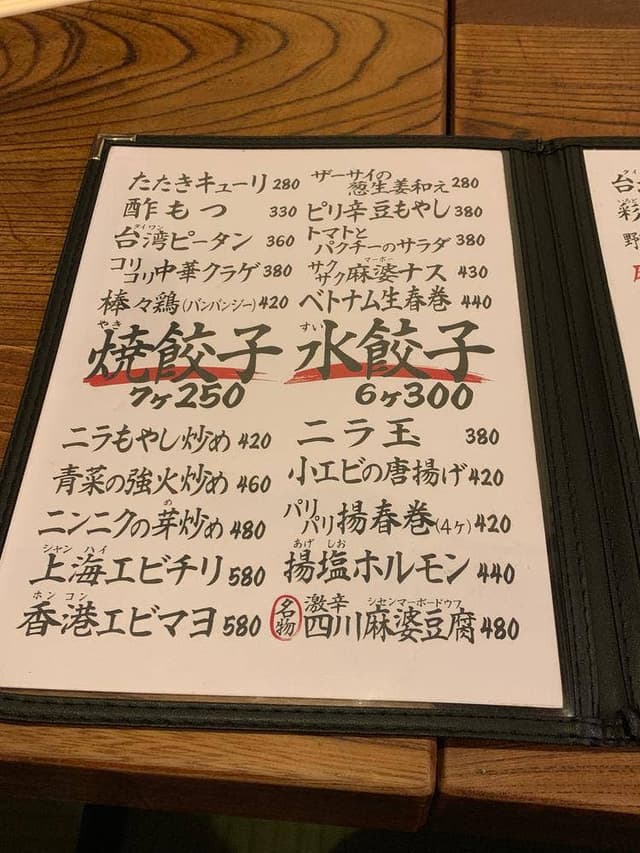 たたきキューリ 280
ザーサイの
葱生姜和え 280
酢もつ 330
ピリ辛豆もやし 380
タイワン
台湾ピータン 360
トマトと
パクチーのサラダ 380
コリ
コリ中華クラゲ 380
マーボー
サク
サク麻婆ナス 430
棒々鶏(バンバンジー) 420
ベトナム生春巻 440
やき
焼餃子
7ヶ250
すい
水餃子
6ヶ300
ニラもやし炒め 420
ニラ玉 380
青菜の強火炒め 460
小エビの唐揚げ 420
め
ニンニクの芽炒め 480
パリ
パリ揚春巻(4ヶ) 420
シャンハイ
上海エビチリ 580
あげ しお
揚塩ホルモン 440
ホンコン
香港エビマヨ 580
名物
激辛
シセンマーボードウフ
四川麻婆豆腐 480
台
彩
野